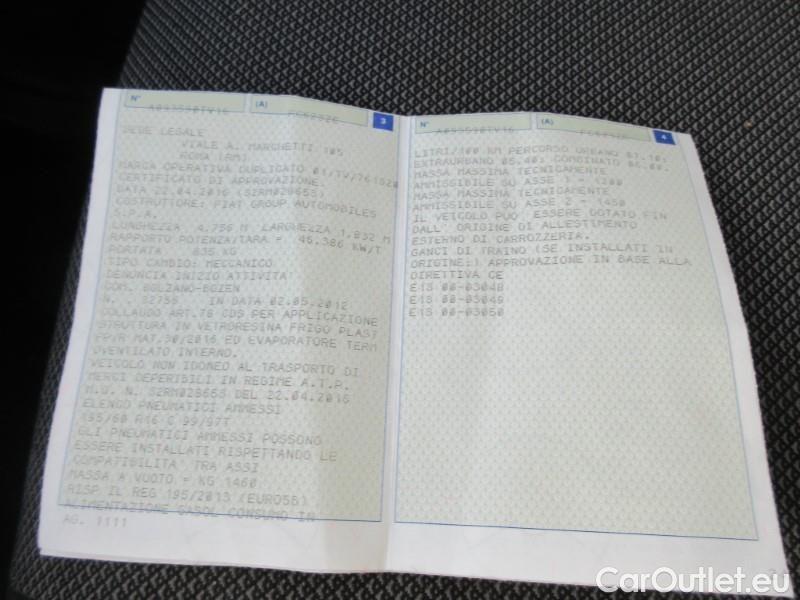 N°
A093590TV16
(A)
3
SEDE LEGALE
VIALE A. MARCHETTI 105
ROMA (RM)
MARCA OPERATIVA DUPLICATO 01/TV/761520
CERTIFICATO DI APPROVAZIONE:
DATA 22.04.2016 (S2RM028665)
COSTRUTTORE: FIAT GROUP AUTOMOBILES
S.P.A.
LUNGHEZZA 4,756 M LARGHEZZA 1,832 M
RAPPORTO POTENZA/TARA = 45.386 KW/T
PORTATA 635 KG
TIPO CAMBIO: MECCANICO
DENUNCIA INIZIO ATTIVITA'
COM. BOLZANO-BOZEN
N. . 32756 IN DATA 02.05.2012
COLLAUDO ART.76 CDS PER APPLICAZIONE
STRUTTURA IN VETRORESINA FRIGO PLAST
MAT.30/2016 ED EVAPORATORE TERM
OVENTILATO INTERNO.
VEICOLO NON IDONEO AL TRASPORTO DI
MERCI DEPERIBILI IN REGIME A.T.P.
N. S2RM028665 DEL 22.04.2016
ELENCO PNEUMATICI AMMESSI
195/60 R16 C 99/97T
GLI PNEUMATICI AMMESSI POSSONO
ESSERE INSTALLATI RISPETTANDO LE
COMPATIBILITA' TRA ASSI
MASSA A VUOTO = KG 1460
RISP IL REG 195/2013 (EURO5B)
ALIMENTAZIONE GASOL CONSUMO IN
AG. 1111
N°
A093590TV16
(A)
4
LITRI/100 KM PERCORSO URBANO 07.10;
EXTRAURBANO 05.40; COMBINATO 06.00.
MASSA MASSIMA TECNICAMENTE
AMMISSIBILE SU ASSE 1 = 1200
MASSA MASSIMA TECNICAMENTE
AMMISSIBILE SU ASSE 2 = 1450
IL VEICOLO PUO' ESSERE DOTATO FIN
DALL' ORIGINE DI ALLESTIMENTO
ESTERNO DI CARROZZERIA.
GANCI DI TRAINO (SE INSTALLATI IN
ORIGINE: APPROVAZIONE IN BASE ALLA
DIRETTIVA CE
E13 00-03048
E13 00-03049
E13 00-03050
CarOutlet.eu